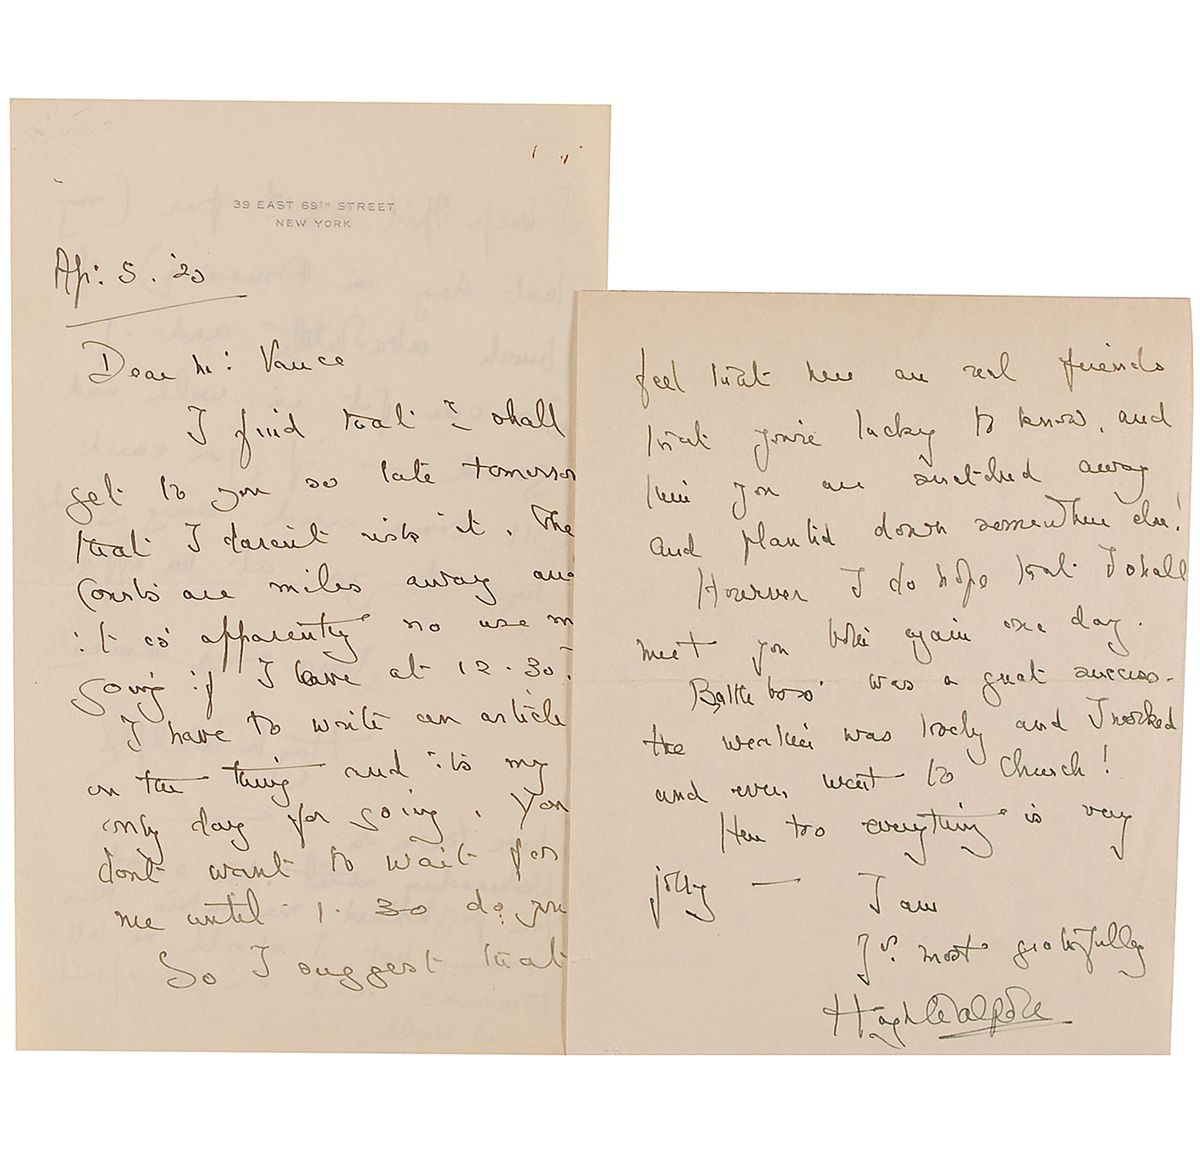 39 EAST 69TH STREET
NEW YORK
Ap: 5. '20
Dear Mr: Vance
I find that I shall
get to you so late tomorrow
that I daren't risk it. The
Courts are miles away and
it is apparently no use my
going if I leave at 12.30.
I have to write an article
on the thing and it's my
only day for going. You
don't want to wait for
me until 1.30 do you
So I suggest that
feel that here are real friends
that you're lucky to know, and
then you are snatched away
and planted down somewhere else!
However I do hope that I shall
meet you both again one day.
was a great success-
the weather was lovely and I worked
and even went to Church!
Here too everything is very
jolly — I am
Yrs. most gratefully
Hugh Walpole